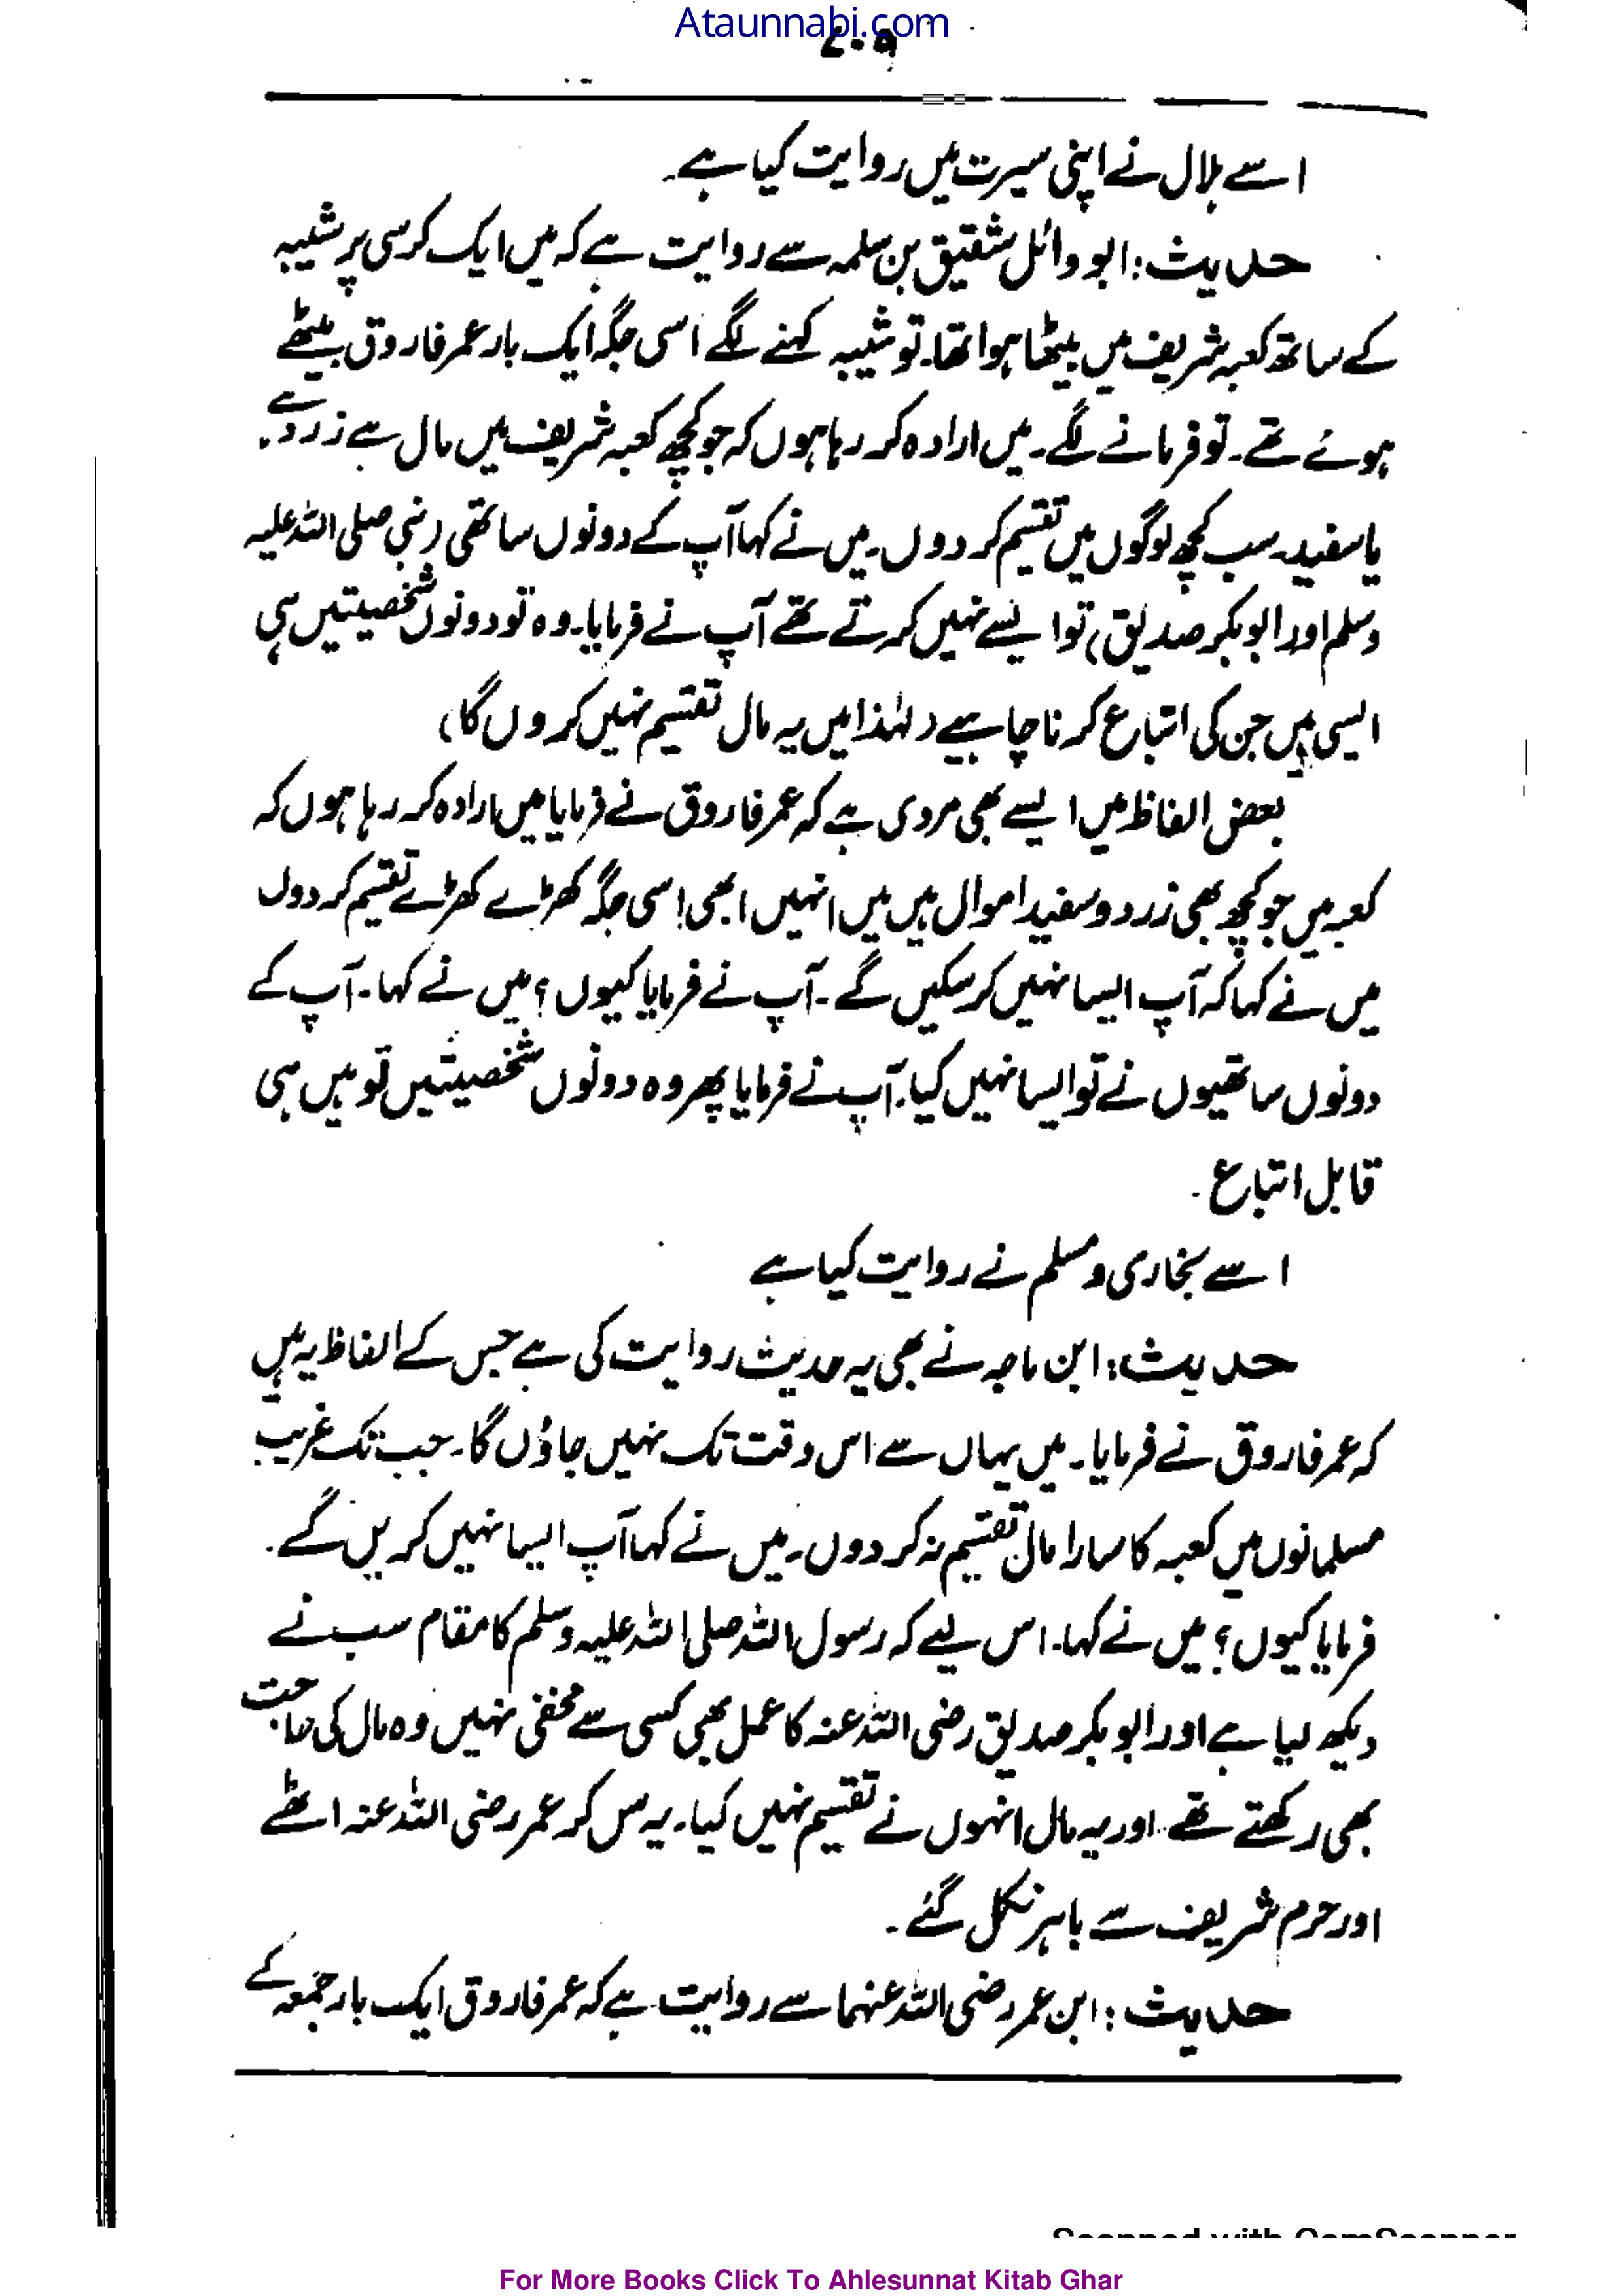 Ataunnabi.com
اسے ہلال نے اپنی سیرت میں روایت کیا ہے۔
حدیث: ابو وائل شقیق بن سلمہ سے روایت ہے کہ میں ایک کرسی پر شیبہ
کے ساتھ کعبہ شریف میں بیٹھا ہوا تھا۔ تو شیبہ کہنے لگے اسی جگہ ایک بار عمر فاروق بیٹھے
ہوئے تھے۔ تو فرمانے لگے۔ میں ارادہ کر رہا ہوں کہ جو کچھ کعبہ شریف میں مال ہے زرد ہے
یا سفید۔ سب کچھ لوگوں میں تقسیم کر دوں۔ میں نے کہا آپ کے دونوں ساتھی (نبی صلی اللہ علیہ
وسلم اور ابوبکر صدیق) تو ایسے نہیں کرتے تھے آپ نے فرمایا۔ وہ تو دونوں شخصیتیں ہی
ایسی ہیں جن کی اتباع کرنا چاہیے (لہٰذا میں یہ مال تقسیم نہیں کروں گا)
بعض الفاظ میں ایسے بھی مروی ہے کہ عمر فاروق نے فرمایا میں ارادہ کر رہا ہوں کہ
کعبہ میں جو کچھ بھی زرد و سفید اموال ہیں میں انہیں ابھی اسی جگہ کھڑے کھڑے تقسیم کر دوں
میں نے کہا کہ آپ ایسا نہیں کر سکیں گے۔ آپ نے فرمایا کیوں؟ میں نے کہا۔ آپ کے
دونوں ساتھیوں نے تو ایسا نہیں کیا۔ آپ نے فرمایا پھر وہ دونوں شخصیتیں تو ہیں ہی
قابل اتباع۔
اسے بخاری و مسلم نے روایت کیا ہے
حدیث: ابن ماجہ نے بھی یہ حدیث روایت کی ہے جس کے الفاظ یہ ہیں
کہ عمر فاروق نے فرمایا۔ میں یہاں سے اس وقت تک نہیں جاؤں گا۔ جب تک غریب
مسلمانوں میں کعبہ کا سارا مال تقسیم نہ کر دوں۔ میں نے کہا آپ ایسا نہیں کریں گے۔
فرمایا کیوں؟ میں نے کہا۔ اس لیے کہ رسول اللہ صلی اللہ علیہ وسلم کا مقام سب نے
دیکھ لیا ہے اور ابوبکر صدیق رضی اللہ عنہ کا عمل بھی کسی سے مخفی نہیں وہ مال کی حاجت
بھی رکھتے تھے۔ اور یہ مال انہوں نے تقسیم نہیں کیا۔ یہ سن کر عمر رضی اللہ عنہ اٹھے
اور حرم شریف سے باہر نکل گئے۔
حدیث: ابن عمر رضی اللہ عنہما سے روایت ہے کہ عمر فاروق ایک بار جمعہ کے
Scanned with CamScanner
For More Books Click To Ahlesunnat Kitab Ghar